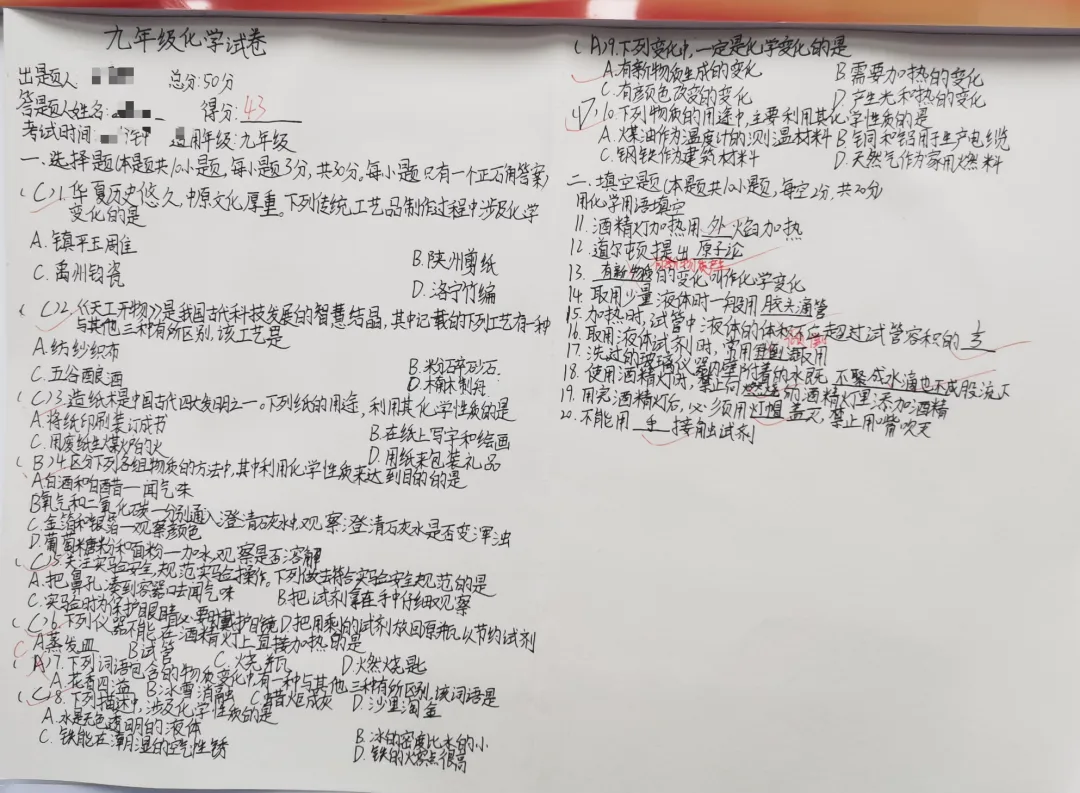 九年级化学试卷
出题人 总分:50分
答题人姓名: 得分: 43
考试时间: 分钟 适用年级:九年级
一.选择题(本题共10小题,每小题3分,共30分。每小题只有一个正确答案)
(C)1.华夏历史悠久,中原文化厚重。下列传统工艺品制作过程中涉及化学
变化的是
A.镇平玉周
B.陕州剪纸
C.禹州钧瓷
D.洛宁竹编
(C)2.《天工开物》是我国古代科技发展的智慧结晶,其中记载的下列工艺有一种
与其他三种有所区别,该工艺是
A.纺纱织布
B.粉碎砂石
C.五谷酿酒
D.木制
(C)3.造纸术是中国古代四大发明之一。下列纸的用途,利用其化学性质的是
A.将纸印刷装订成书
B.在纸上写字和绘画
C.用废纸生煤炉的火
D.用纸来包装礼品
(B)4.区分下列各组物质的方法中,其中利用化学性质来达到目的的是
A白酒和白醋一闻气味
B氧气和二氧化碳一分别通入澄清石灰水中观察澄清石灰水是否变浑浊
C.金箔和银箔一观察颜色
D.葡萄糖粉和面粉一加水观察是否溶解
(C)5.关注实验安全,规范实验操作。下列做法符合实验安全规范的是
A.把鼻孔凑到容器口去闻气味
B.把试剂拿在手中仔细观察
C.实验时为保护眼睛必要时戴护目镜 D.把用剩的试剂放回原瓶,以节约试剂
(C)6.下列仪器不能在酒精灯上直接加热的是
A蒸发皿 B试管 C.烧瓶 D.火燃烧匙
C
(A)7.下列词语包含的物质变化中,有一种与其他三种有所区别,该词语是
A.花香四溢 B.冰雪消融 C.蜡炬成灰 D.沙里淘金
(C)8.下列描述中,涉及化学性质的是
A.水是无色透明的液体
B.冰的密度比水的小
C.铁能在潮湿的空气性锈
D.铁的火熔点很高
(A)9.下列变化中,一定是化学变化的是
A.有新物质生成的变化
B需要加热的变化
C.有颜色改变的变化
D.产生光和热的变化
(D)10.下列物质的用途中,主要利用其化学性质的是
A.煤油作为温度计的测温材料 B铜和铝用于生产电缆
C.钢铁作为建筑材料
D.天然气作为家用燃料
二.填空题(本题共10小题,每空2分,共20分)
用化学用语填空
11.酒精灯加热用外焰加热
12.道尔顿提出原子论
13.有新物的变化叫作化学变化
14.取用少量液体时一般用胶头滴管
15.加热时,试管中液体的体积不应超过试管容积的1/3
16.取用液体试剂时,常用取用
17.洗过的玻璃仪器内壁附着的水既不聚成水滴也不成股流下
18.使用酒精灯时,禁止向燃着的酒精灯里添加酒精
19.用完酒精灯后,必须用灯帽盖灭,禁止用嘴吹灭
20.不能用手接触试剂